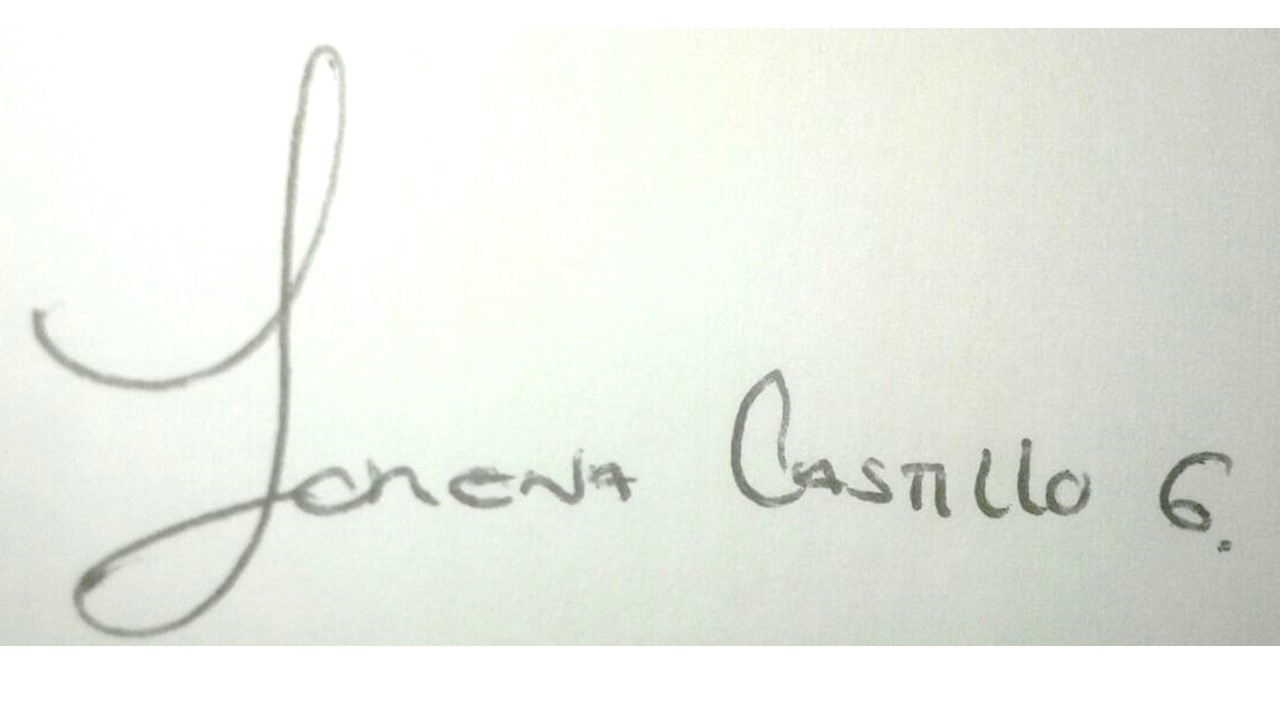 Lorena Castillo G.